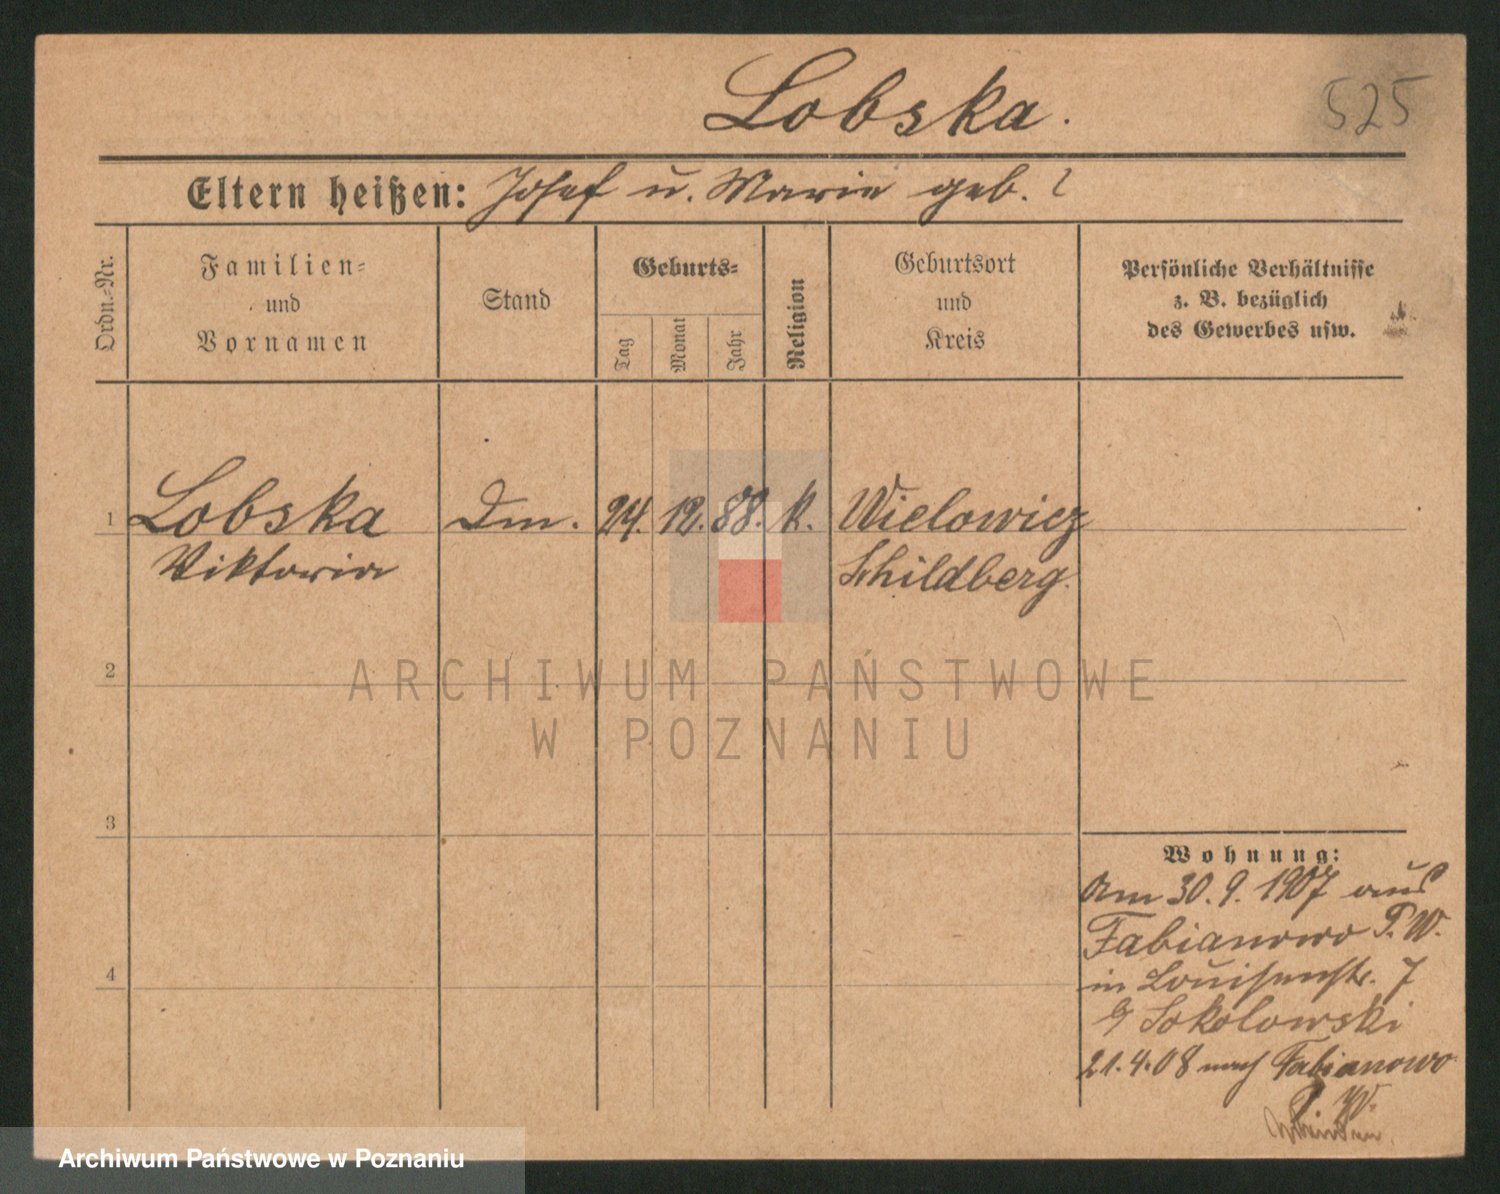 Lobska.
525
Eltern heißen: Josef u. Marie geb. ?
Ordn.-Nr.
Familien-
und
Vornamen
Stand
Geburts-
Tag
Monat
Jahr
Religion
Geburtsort
und
Kreis
Persönliche Verhältnisse
z. B. bezüglich
des Gewerbes usw.
1 Lobska Dm. 24. 12. 88. k. Wielowicz
Viktoria Schildberg.
2
3
4
Wohnung:
Am 30.9.1907 aus
Fabianowo P. W.
in Louisenstr. 7
b/ Sokolowski
21.4.08 nach Fabianowo
P. W.
ARCHIWUM PAŃSTWOWE
W POZNANIU
Archiwum Państwowe w Poznaniu